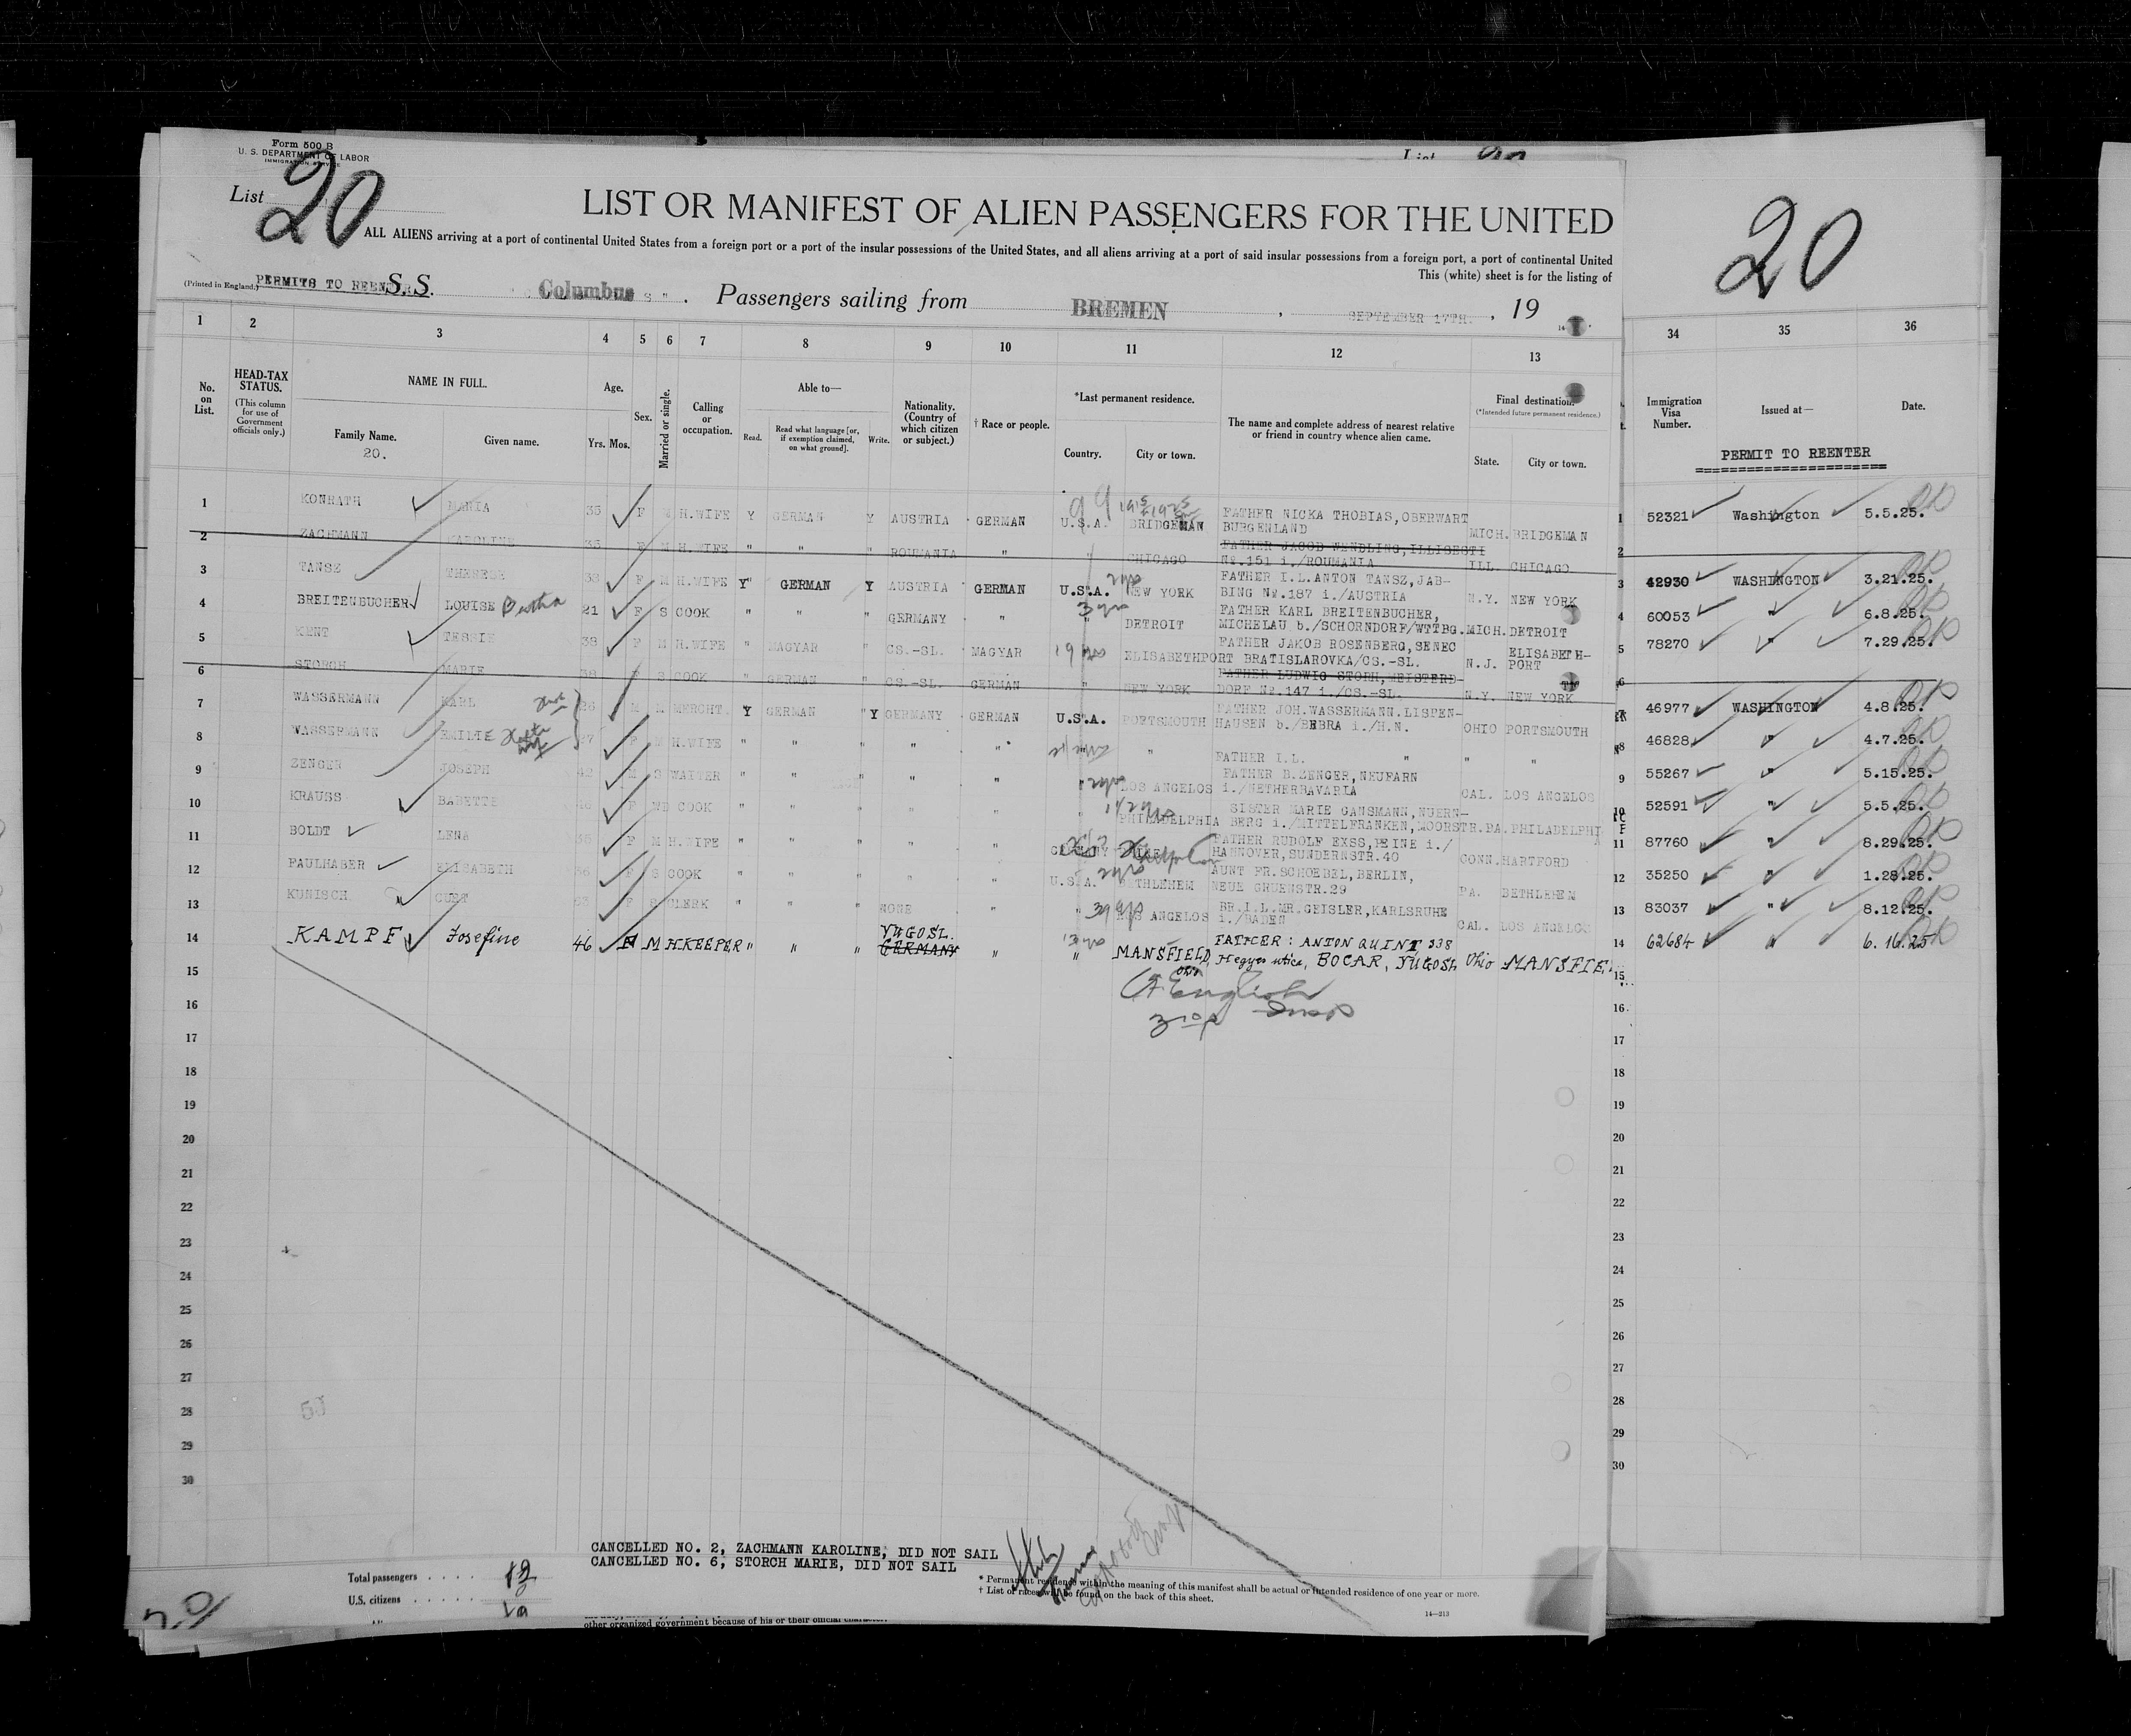 Form 500 B
U. S. DEPARTMENT OF LABOR
IMMIGRATION SERVICE
List 20
LIST OR MANIFEST OF ALIEN PASSENGERS FOR THE UNITED
20
ALL ALIENS arriving at a port of continental United States from a foreign port or a port of the insular possessions of the United States, and all aliens arriving at a port of said insular possessions from a foreign port, a port of continental United
This (white) sheet is for the listing of
(Printed in England.) PERMITS TO REENTER S. S. Columbus Passengers sailing from BREMEN, SEPTEMBER 17TH., 19
1 2 3 4 5 6 7 8 9 10 11 12 13 34 35 36
No. on List.
HEAD-TAX STATUS.
(This column for use of Government officials only.)
NAME IN FULL.
Family Name.
20.
Given name.
Age.
Yrs. Mos.
Sex.
Married or single.
Calling or occupation.
Able to—
Read.
Read what language [or, if exemption claimed, on what ground].
Write.
Nationality. (Country of which citizen or subject.)
† Race or people.
*Last permanent residence.
Country.
City or town.
The name and complete address of nearest relative or friend in country whence alien came.
Final destination.
(*Intended future permanent residence.)
State.
City or town.
Immigration Visa Number.
Issued at—
Date.
PERMIT TO REENTER
1 KONRATH MARIA 35 F M H.WIFE Y GERMAN Y AUSTRIA GERMAN U.S.A. BRIDGEMAN FATHER NICKA THOBIAS, OBERWART BURGENLAND MICH. BRIDGEMAN 1 52321 Washington 5.5.25.
2 ZACHMANN KAROLINE 35 F M H.WIFE " " " ROUMANIA " " CHICAGO FATHER JACOB WENDLING, ILLISESTI No.151 i./ROUMANIA ILL. CHICAGO 2
3 TANSZ THERESE 33 F M H.WIFE Y" GERMAN Y AUSTRIA GERMAN U.S.A. 2 yrs NEW YORK FATHER I.L.ANTON TANSZ, JAB- BING No.187 i./AUSTRIA N.Y. NEW YORK 3 42930 WASHINGTON 3.21.25.
4 BREITENBUCHER LOUISE Bertha 21 F S COOK " " " GERMANY " 3 yrs " DETROIT FATHER KARL BREITENBUCHER, MICHELAU b./SCHORNDORF/WTTBG. MICH. DETROIT 4 60053 " 6.8.25.
5 KENT TESSIE 38 F M H.WIFE " MAGYAR " CS.-SL. MAGYAR 19 yrs ELISABETHPORT FATHER JAKOB ROSENBERG, SENEC BRATISLAROVKA/CS.-SL. N.J. ELISABETH- PORT 5 78270 " 7.29.25.
6 STORCH MARIE 38 F S COOK " GERMAN " CS.-SL. GERMAN " NEW YORK FATHER LUDWIG STORH, MEISTERD- DORF No.147 i./CS.-SL. N.Y. NEW YORK 6
7 WASSERMANN KARL 26 M M MERCHT. Y GERMAN "Y GERMANY GERMAN U.S.A. PORTSMOUTH FATHER JOH.WASSERMANN.LISPEN- HAUSEN b./BEBRA i./H.N. OHIO PORTSMOUTH 7 46977 WASHINGTON 4.8.25.
8 WASSERMANN EMILIE 27 F M H.WIFE " " " " " " FATHER I.L. " " " 8 46828 " 4.7.25.
9 ZENGER JOSEPH 42 M S WAITER " " " " " 2 yrs LOS ANGELOS FATHER B.ZENGER, NEUFARN i./NETHERBAVARIA CAL. LOS ANGELOS 9 55267 " 5.15.25.
10 KRAUSS BABETTE 46 F WD COOK " " " " " 1 1/2 yrs PHILADELPHIA SISTER MARIE GANSMANN, NUERN- BERG i./MITTELFRANKEN, MOORSTR. PA. PHILADELPHI 10 52591 " 5.5.25.
11 BOLDT LENA 35 F M H.WIFE " " " " " GERMANY FATHER RUDOLF EXSS, PEINE i./ HANNOVER, SUNDERNSTR.40 CONN. HARTFORD 11 87760 " 8.29.25.
12 PAULHABER ELISABETH 36 F S COOK " " " " " U.S.A. 2 yrs BETHLEHEM AUNT FR.SCHOEBEL, BERLIN, NEUE GRUENSTR.29 PA. BETHLEHEM 12 35250 " 1.28.25.
13 KUNISCH CURT 23 F S CLERK " " " NONE " " LOS ANGELOS BR.I.L.MR.GEISLER, KARLSRUHE i./BADEN CAL. LOS ANGELOS 13 83037 " 8.12.25.
14 KAMPF Josefine 46 F M H.KEEPER " " " YUGOSL. GERMANY " 13 yrs " MANSFIELD, Ohio FATHER: ANTON QUINT 338 Hegyes utica, BOCAR, YUGOSL Ohio MANSFIE 14 62684 " 6.16.25
15 15
16 16
17 17
18 18
19 19
20 20
21 21
22 22
23 23
24 24
25 25
26 26
27 27
28 28
29 29
30 30
English
Insp
CANCELLED NO. 2, ZACHMANN KAROLINE, DID NOT SAIL
CANCELLED NO. 6, STORCH MARIE, DID NOT SAIL
Total passengers . . . . 12
U.S. citizens . . . . .
* Permanent residence within the meaning of this manifest shall be actual or intended residence of one year or more.
† List of races will be found on the back of this sheet.
14—213
other organized government because of his or their official character.